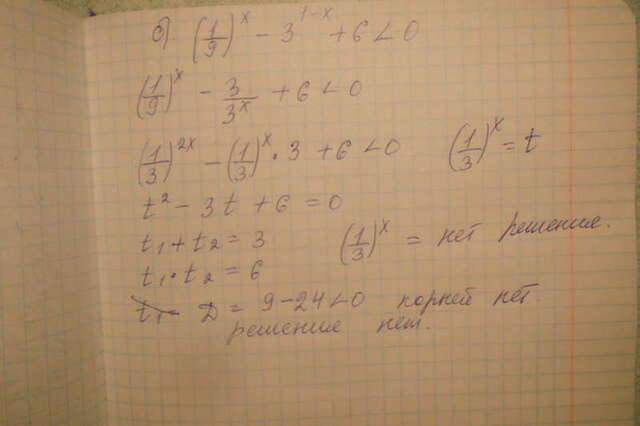 б) (1/9)^x - 3^(1-x) + 6 < 0
(1/9)^x - 3/3^x + 6 < 0
(1/3)^2x - (1/3)^x · 3 + 6 < 0 (1/3)^x = t
t² - 3t + 6 = 0
t₁ + t₂ = 3 (1/3)^x = нет решения.
t₁ · t₂ = 6
t₁ - D = 9 - 24 < 0 корней нет.
решение нет.